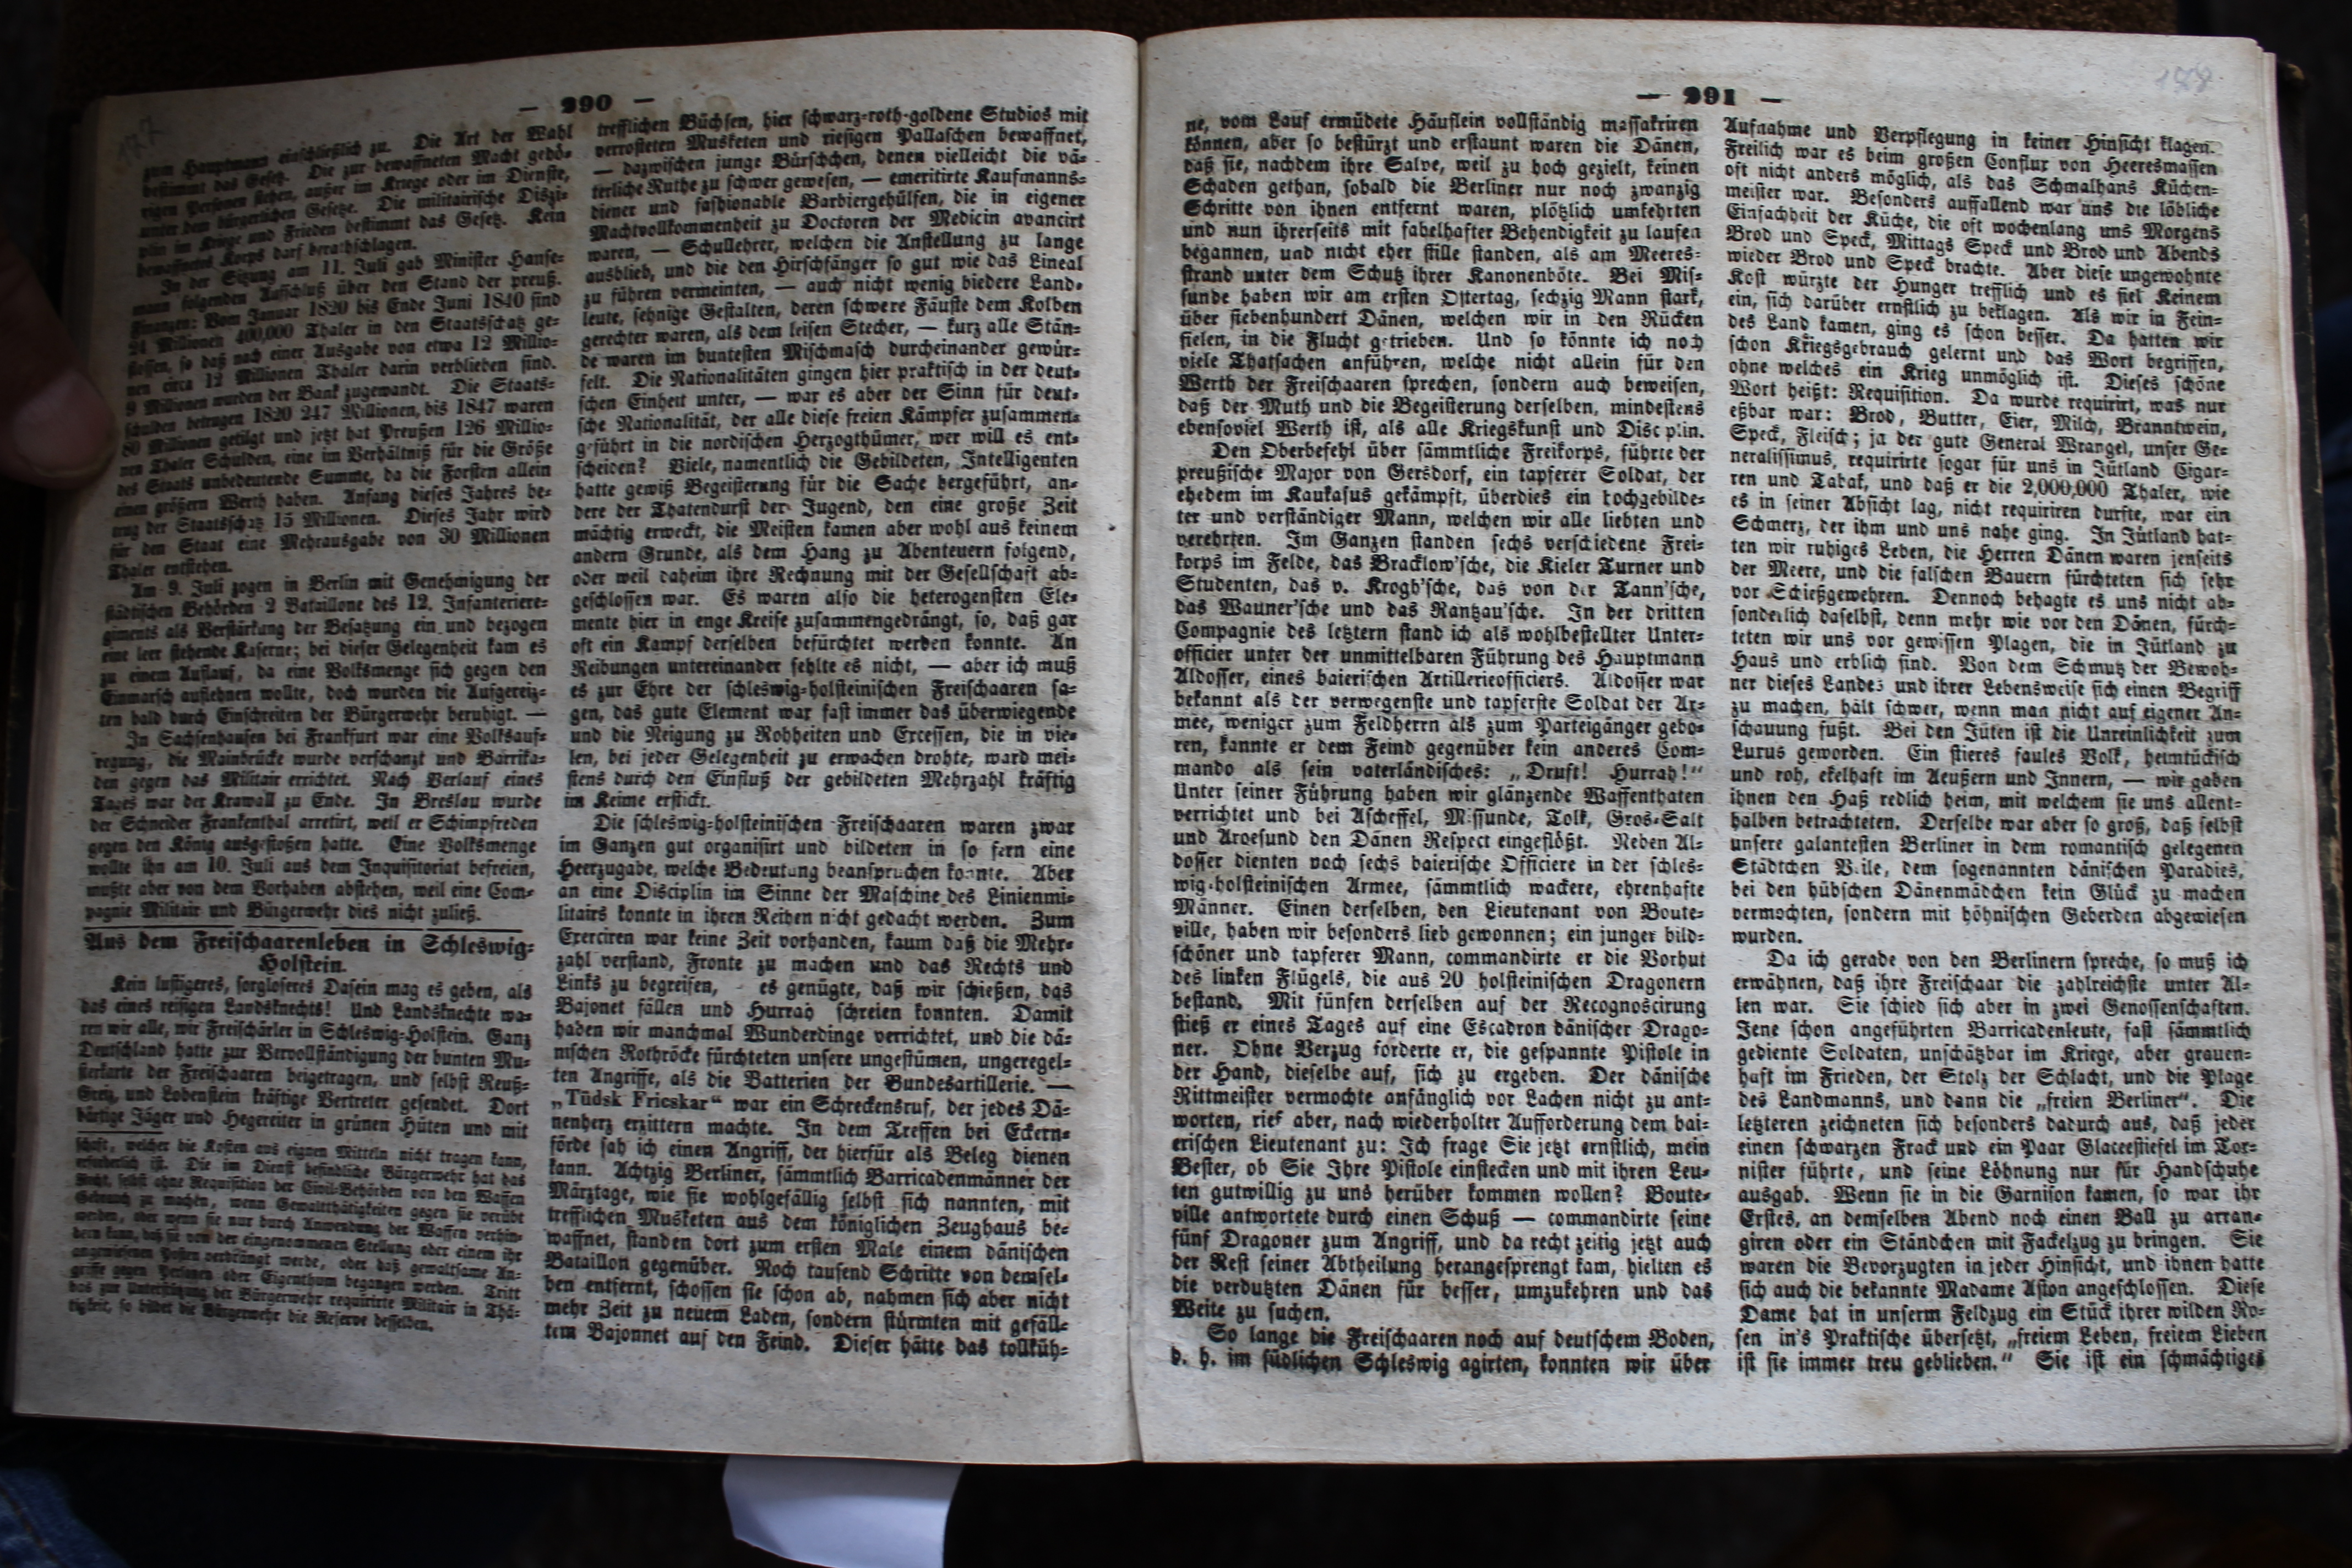 — 290 —
zum Hauptmann einschließlich zu. Die Art der Wahl
bestimmt das Gesetz. Die zur bewaffneten Macht gehö-
rigen Personen stehen, außer im Kriege oder im Dienste,
unter dem bürgerlichen Gesetze. Die militairische Diszi-
plin im Kriege und Frieden bestimmt das Gesetz. Kein
bewaffnetes Korps darf berathschlagen.
In der Sitzung am 11. Juli gab Minister Hanse-
mann folgenden Aufschluß über den Stand der preuß.
Finanzen: Vom Januar 1820 bis Ende Juni 1840 sind
24 Millionen 400,000 Thaler in den Staatsschatz ge-
flossen, so daß nach einer Ausgabe von etwa 12 Millio-
nen circa 12 Millionen Thaler darin verblieben sind.
9 Millionen wurden der Bank zugewandt. Die Staats-
schulden betrugen 1820 247 Millionen, bis 1847 waren
80 Millionen getilgt und jetzt hat Preußen 126 Millio-
nen Thaler Schulden, eine im Verhältniß für die Größe
des Staats unbedeutende Summe, da die Forsten allein
einen größern Werth haben. Anfang dieses Jahres be-
trug der Staatsschatz 15 Millionen. Dieses Jahr wird
für den Staat eine Mehrausgabe von 30 Millionen
Thaler entstehen.
Am 9. Juli zogen in Berlin mit Genehmigung der
städtischen Behörden 2 Bataillone des 12. Infanteriere-
giments als Verstärkung der Besatzung ein und bezogen
eine leer stehende Kaserne; bei dieser Gelegenheit kam es
zu einem Auflauf, da eine Volksmenge sich gegen den
Einmarsch auflehnen wollte, doch wurden die Aufgereiz-
ten bald durch Einschreiten der Bürgerwehr beruhigt. —
In Sachsenhausen bei Frankfurt war eine Volksauf-
regung, die Mainbrücke wurde verschanzt und Barrika-
den gegen das Militair errichtet. Nach Verlauf eines
Tages war der Krawall zu Ende. In Breslau wurde
der Schneider Frankenthal arretirt, weil er Schimpfreden
gegen den König ausgestoßen hatte. Eine Volksmenge
wollte ihn am 10. Juli aus dem Inquisitoriat befreien,
mußte aber von dem Vorhaben abstehen, weil eine Com-
pagnie Militair und Bürgerwehr dies nicht zuließ.
Aus dem Freischaarenleben in Schleswig-
Holstein.
Kein lustigeres, sorgloseres Dasein mag es geben, als
das eines reisigen Landsknechts! Und Landsknechte wa-
ren wir alle, wir Freischärler in Schleswig-Holstein. Ganz
Deutschland hatte zur Vervollständigung der bunten Mu-
sterkarte der Freischaaren beigetragen, und selbst Reuß-
Greiz und Lobenstein kräftige Vertreter gesendet. Dort
bärtige Jäger und Hegereiter in grünen Hüten und mit
schaft, welcher die Kosten aus eignen Mitteln nicht tragen kann,
erforderlich ist. Die im Dienst befindliche Bürgerwehr hat das
Recht, selbst ohne Requisition der Civil-Behörden von den Waffen
Gebrauch zu machen, wenn Gewaltthätigkeiten gegen sie verübt
werden, oder wenn sie nur durch Anwendung der Waffen verhin-
dern kann, daß sie von der eingenommenen Stellung oder einem ihr
angewiesenen Posten verdrängt werde, oder daß gewaltsame An-
griffe gegen Personen oder Eigenthum begangen werden. Tritt
das zur Unterstützung der Bürgerwehr requirirte Militair in Thä-
tigkeit, so bildet die Bürgerwehr die Reserve desselben.
trefflichen Büchsen, hier schwarz-roth-goldene Studios mit
verrosteten Musketen und riesigen Pallaschen bewaffnet,
— dazwischen junge Bürschchen, denen vielleicht die vä-
terliche Ruthe zu schwer gewesen, — emeritirte Kaufmanns-
diener und fashionable Barbiergehülfen, die in eigener
Machtvollkommenheit zu Doctoren der Medicin avancirt
waren, — Schullehrer, welchen die Anstellung zu lange
ausblieb, und die den Hirschfänger so gut wie das Lineal
zu führen vermeinten, — auch nicht wenig biedere Land-
leute, sehnige Gestalten, deren schwere Fäuste dem Kolben
gerechter waren, als dem leisen Stecher, — kurz alle Stän-
de waren im buntesten Mischmasch durcheinander gewür-
felt. Die Nationalitäten gingen hier praktisch in der deut-
schen Einheit unter, — war es aber der Sinn für deut-
sche Nationalität, der alle diese freien Kämpfer zusammen-
geführt in die nordischen Herzogthümer, wer will es ent-
scheiden? Viele, namentlich die Gebildeten, Intelligenten
hatte gewiß Begeisterung für die Sache hergeführt, an-
dere der Thatendurst der Jugend, den eine große Zeit
mächtig erweckt, die Meisten kamen aber wohl aus keinem
andern Grunde, als dem Hang zu Abenteuern folgend,
oder weil daheim ihre Rechnung mit der Gesellschaft ab-
geschlossen war. Es waren also die heterogensten Ele-
mente hier in enge Kreise zusammengedrängt, so, daß gar
oft ein Kampf derselben befürchtet werden konnte. An
Reibungen untereinander fehlte es nicht, — aber ich muß
es zur Ehre der schleswig-holsteinischen Freischaaren sa-
gen, das gute Element war fast immer das überwiegende
und die Neigung zu Rohheiten und Ercessen, die in vie-
len, bei jeder Gelegenheit zu erwachen drohte, ward mei-
stens durch den Einfluß der gebildeten Mehrzahl kräftig
im Keime erstickt.
Die schleswig-holsteinischen Freischaaren waren zwar
im Ganzen gut organisirt und bildeten in so fern eine
Heerzugabe, welche Bedeutung beanspruchen konnte. Aber
an eine Disciplin im Sinne der Maschine des Linienmi-
litairs konnte in ihren Reihen nicht gedacht werden. Zum
Exerciren war keine Zeit vorhanden, kaum daß die Mehr-
zahl verstand, Fronte zu machen und das Rechts und
Links zu begreifen, es genügte, daß wir schießen, das
Bajonet fällen und Hurrah schreien konnten. Damit
haben wir manchmal Wunderdinge verrichtet, und die dä-
nischen Rothröcke fürchteten unsere ungestümen, ungeregel-
ten Angriffe, als die Batterien der Bundesartillerie. —
„Tüdsk Fricskar“ war ein Schreckensruf, der jedes Dä-
nenherz erzittern machte. In dem Treffen bei Eckern-
förde sah ich einen Angriff, der hierfür als Beleg dienen
kann. Achtzig Berliner, sämmtlich Barricadenmänner der
Märztage, wie sie wohlgefällig selbst sich nannten, mit
trefflichen Musketen aus dem königlichen Zeughaus be-
waffnet, standen dort zum ersten Male einem dänischen
Bataillon gegenüber. Noch tausend Schritte von demsel-
ben entfernt, schossen sie schon ab, nahmen sich aber nicht
mehr Zeit zu neuem Laden, sondern stürmten mit gefäll-
tem Bajonnet auf den Feind. Dieser hätte das tollküh-
— 291 —
ne, vom Lauf ermüdete Häuflein vollständig massakriren
können, aber so bestürzt und erstaunt waren die Dänen,
daß sie, nachdem ihre Salve, weil zu hoch gezielt, keinen
Schaden gethan, sobald die Berliner nur noch zwanzig
Schritte von ihnen entfernt waren, plötzlich umkehrten
und nun ihrerseits mit fabelhafter Behendigkeit zu laufen
begannen, und nicht eher stille standen, als am Meeres-
strand unter dem Schutz ihrer Kanonenböte. Bei Mis-
sunde haben wir am ersten Ostertag, sechzig Mann stark,
über siebenhundert Dänen, welchen wir in den Rücken
fielen, in die Flucht getrieben. Und so könnte ich noch
viele Thatsachen anführen, welche nicht allein für den
Werth der Freischaaren sprechen, sondern auch beweisen,
daß der Muth und die Begeisterung derselben, mindestens
ebensoviel Werth ist, als alle Kriegskunst und Disciplin.
Den Oberbefehl über sämmtliche Freikorps, führte der
preußische Major von Gersdorf, ein tapferer Soldat, der
ehedem im Kaukasus gekämpft, überdies ein hochgebilde-
ter und verständiger Mann, welchen wir alle liebten und
verehrten. Im Ganzen standen sechs verschiedene Frei-
korps im Felde, das Bracklow'sche, die Kieler Turner und
Studenten, das v. Krogh'sche, das von der Tann'sche,
das Wauner'sche und das Rantzau'sche. In der dritten
Compagnie des letztern stand ich als wohlbestellter Unter-
officier unter der unmittelbaren Führung des Hauptmann
Aldosser, eines baierischen Artillerieofficiers. Aldosser war
bekannt als der verwegenste und tapferste Soldat der Ar-
mee, weniger zum Feldherrn als zum Parteigänger gebo-
ren, kannte er dem Feind gegenüber kein anderes Com-
mando als sein vaterländisches: „Druft! Hurrah!“
Unter seiner Führung haben wir glänzende Waffenthaten
verrichtet und bei Ascheffel, Missunde, Tolk, Gros-Salt
und Aroesund den Dänen Respect eingeflößt. Neben Al-
dosser dienten noch sechs baierische Officiere in der schles-
wig-holsteinischen Armee, sämmtlich wackere, ehrenhafte
Männer. Einen derselben, den Lieutenant von Boute-
ville, haben wir besonders lieb gewonnen; ein junger bild-
schöner und tapferer Mann, commandirte er die Vorhut
des linken Flügels, die aus 20 holsteinischen Dragonern
bestand. Mit fünfen derselben auf der Recognoscirung
stieß er eines Tages auf eine Escadron dänischer Drago-
ner. Ohne Verzug forderte er, die gespannte Pistole in
der Hand, dieselbe auf, sich zu ergeben. Der dänische
Rittmeister vermochte anfänglich vor Lachen nicht zu ant-
worten, rief aber, nach wiederholter Aufforderung dem bai-
erischen Lieutenant zu: Ich frage Sie jetzt ernstlich, mein
Bester, ob Sie Ihre Pistole einstecken und mit ihren Leu-
ten gutwillig zu uns herüber kommen wollen? Boute-
ville antwortete durch einen Schuß — commandirte seine
fünf Dragoner zum Angriff, und da recht zeitig jetzt auch
der Rest seiner Abtheilung herangesprengt kam, hielten es
die verdutzten Dänen für besser, umzukehren und das
Weite zu suchen.
So lange die Freischaaren noch auf deutschem Boden,
d. h. im südlichen Schleswig agirten, konnten wir über
Aufnahme und Verpflegung in keiner Hinsicht klagen.
Freilich war es beim großen Conflux von Heeresmassen
oft nicht anders möglich, als das Schmalhans Küchen-
meister war. Besonders auffallend war uns die löbliche
Einfachheit der Küche, die oft wochenlang uns Morgens
Brod und Speck, Mittags Speck und Brod und Abends
wieder Brod und Speck brachte. Aber diese ungewohnte
Kost würzte der Hunger trefflich und es fiel Keinem
ein, sich darüber ernstlich zu beklagen. Als wir in Fein-
des Land kamen, ging es schon besser. Da hatten wir
schon Kriegsgebrauch gelernt und das Wort begriffen,
ohne welches ein Krieg unmöglich ist. Dieses schöne
Wort heißt: Requisition. Da wurde requirirt, was nur
eßbar war: Brod, Butter, Eier, Milch, Branntwein,
Speck, Fleisch; ja der gute General Wrangel, unser Ge-
neralissimus, requirirte sogar für uns in Jütland Cigar-
ren und Tabak, und daß er die 2,000,000 Thaler, wie
es in seiner Absicht lag, nicht requiriren durfte, war ein
Schmerz, der ihm und uns nahe ging. In Jütland hat-
ten wir ruhiges Leben, die Herren Dänen waren jenseits
der Meere, und die falschen Bauern fürchteten sich sehr
vor Schießgewehren. Dennoch behagte es uns nicht ab-
sonderlich daselbst, denn mehr wie vor den Dänen, fürch-
teten wir uns vor gewissen Plagen, die in Jütland zu
Haus und erblich sind. Von dem Schmutz der Bewoh-
ner dieses Landes und ihrer Lebensweise sich einen Begriff
zu machen, hält schwer, wenn man nicht auf eigener An-
schauung fußt. Bei den Jüten ist die Unreinlichkeit zum
Luxus geworden. Ein stieres faules Volk, heimtückisch
und roh, ekelhaft im Aeußern und Innern, — wir gaben
ihnen den Haß redlich heim, mit welchem sie uns allent-
halben betrachteten. Derselbe war aber so groß, daß selbst
unsere galantesten Berliner in dem romantisch gelegenen
Städtchen Veile, dem sogenannten dänischen Paradies,
bei den hübschen Dänenmädchen kein Glück zu machen
vermochten, sondern mit höhnischen Geberden abgewiesen
wurden.
Da ich gerade von den Berlinern spreche, so muß ich
erwähnen, daß ihre Freischaar die zahlreichste unter Al-
len war. Sie schied sich aber in zwei Genossenschaften.
Jene schon angeführten Barricadenleute, fast sämmtlich
gediente Soldaten, unschätzbar im Kriege, aber grauen-
haft im Frieden, der Stolz der Schlacht, und die Plage
des Landmanns, und dann die „freien Berliner“. Die
letzteren zeichneten sich besonders dadurch aus, daß jeder
einen schwarzen Frack und ein Paar Glaceestiefel im Tor-
nister führte, und seine Löhnung nur für Handschuhe
ausgab. Wenn sie in die Garnison kamen, so war ihr
Erstes, an demselben Abend noch einen Ball zu arran-
giren oder ein Ständchen mit Fackelzug zu bringen. Sie
waren die Bevorzugten in jeder Hinsicht, und ihnen hatte
sich auch die bekannte Madame Aston angeschlossen. Diese
Dame hat in unserm Feldzug ein Stück ihrer wilden Ro-
sen in's Praktische übersetzt, „freiem Leben, freiem Lieben
ist sie immer treu geblieben.“ Sie ist ein schmächtiges